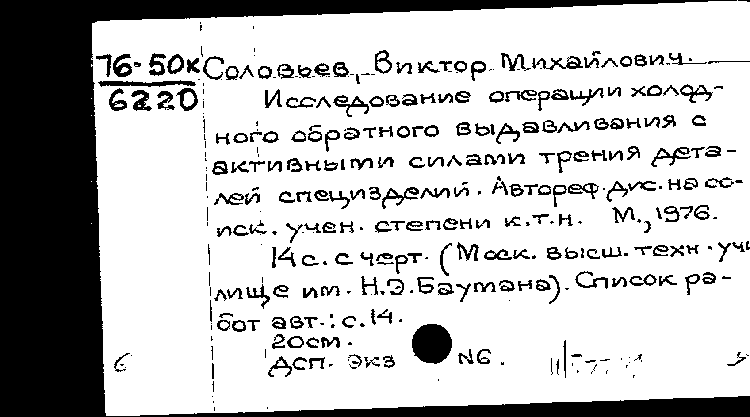 76-50к Соловьев, Виктор Михайлович.
6220 Исследование операции холод-
ного обратного выдавливания с
активными силами трения дета-
лей специзделий. Автореф. дис. на со-
иск. учен. степени к.т.н. М., 1976.
14 с. с черт. (Моск. высш. техн. учи
лище им. Н.Э. Баумана). Список ра-
бот авт.: с. 14.
20см.
6 ДСП. Экз N6.